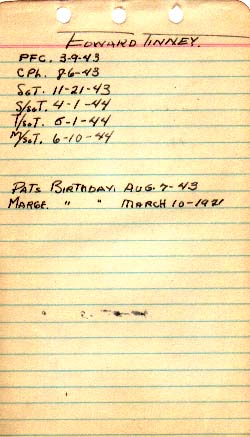 EDWARD TINNEY.
PFC. 3-9-43
CPL. 8-6-43
SGT. 11-21-43
S/SGT. 4-1-44
T/SGT. 5-1-44
M/SGT. 6-10-44
PATS BIRTHDAY, AUG. 7-43
MARGE. " " MARCH 10-1921